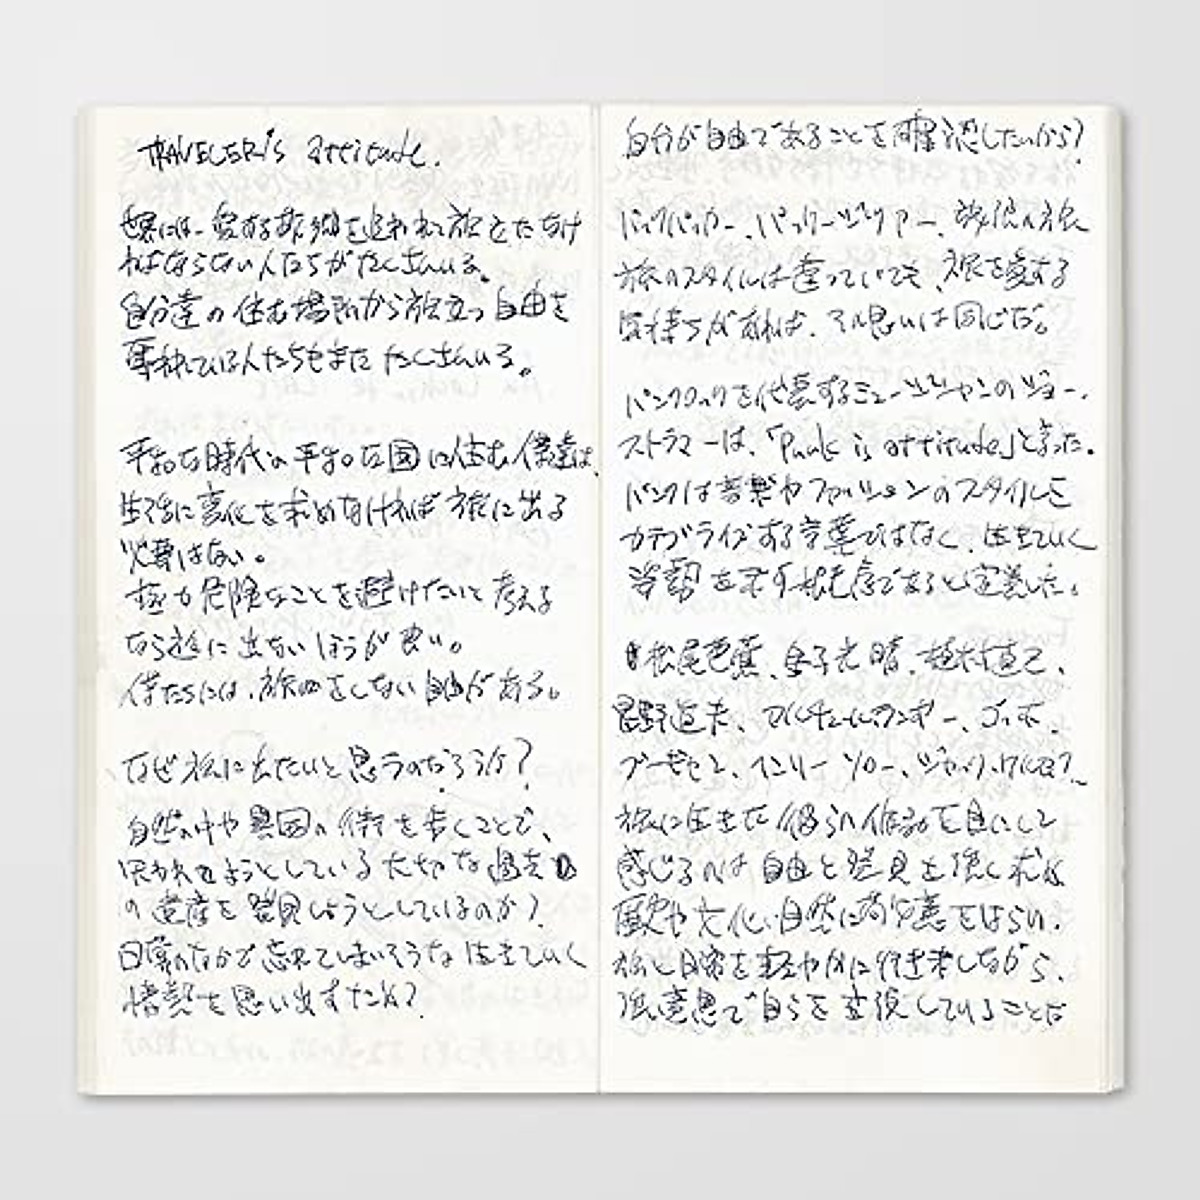 TRAVELER'S attitude.
世界には、愛する故郷を追われて旅をたなけ
ればならない人たちがたくさんいる。
自分達の住む場所から旅立つ自由を
奪われている人たちもまたたくさんいる。
平和な時代の平和な国に住む僕達は、
生活に変化を求めなければ旅に出る
必要はない。
極力危険なことを避けたいと考える
なら旅に出ないほうが良い。
僕たちには、旅をしない自由がある。
なぜ旅に出たいと思うのだろうか?
自然の中や異国の街を歩くことで、
失われようとしている大切な過去
の遺産を発見しようとしているのか?
日常のなかで忘れてしまいそうな生きていく
情熱を思い出すため?
自分が自由であることを確認したいから?
バックパッカー、パッケージツアー、放浪の旅
旅のスタイルは違っていても、旅を愛する
気持ちがあれば、その思いは同じだ。
パンクロックを代表するミュージシャンのジョー・
ストラマーは、「Punk is attitude」と言った。
パンクは音楽やファッションのスタイルを
カテゴライズする言葉ではなく、生きていく
姿勢を示す根元であると定義した。
松尾芭蕉、金子光晴、植村直己、
星野道夫、マルチェロ、ゴッホ、
ブーゼ、ヘンリー ソロー、ジャック・ケルアック
旅に生きた彼らの作品を目にして
感じるのは自由と発見を強く求め
歴史や文化、自然に対する敬意をはらい、
旅と日常を軽やかに行き来しながら、
強い意思で自らを表現していることだ